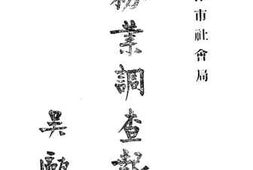 市社會局
業調查報
吳